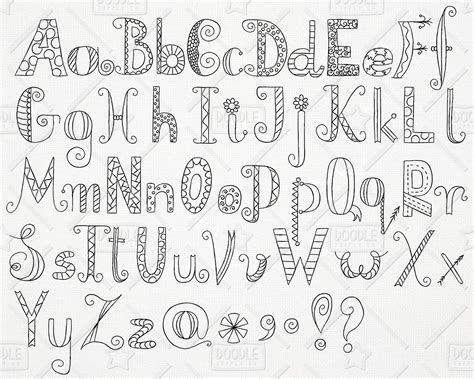 AaBbCcDdEeFf
GgHhIiJjKkLl
MmNnOoPpQqRr
SsTtUuVvWwXx
YyZz@*,,!?
DOODLE